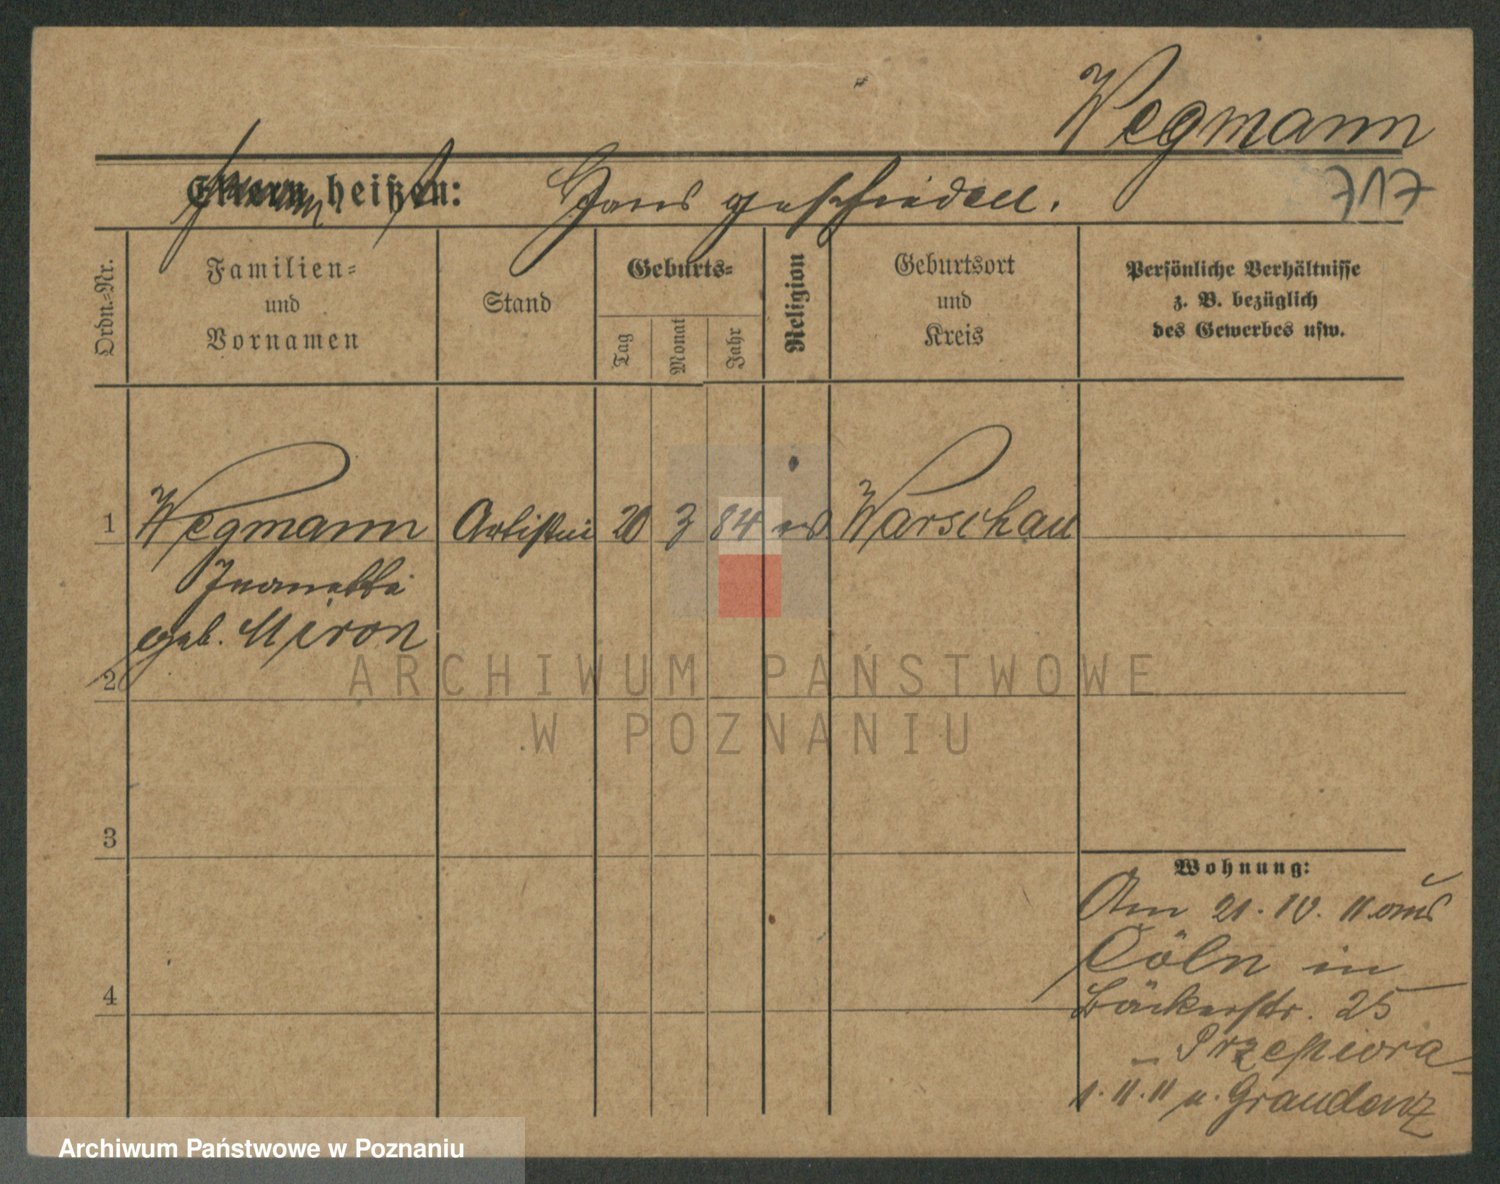 Wegmann
717
Eltern heißen: Ganz geschieden.
Ordn.-Nr.
Familien-
und
Vornamen
Stand
Geburts-
Tag
Monat
Jahr
Religion
Geburtsort
und
Kreis
Persönliche Verhältnisse
z. B. bezüglich
des Gewerbes usw.
1 Wegmann Artistin 20 3 84 ev Warschau
geb. Miron
2
3
4
Wohnung:
Am 21. IV. 11 aus
Cöln in
Bäckerstr. 25
Przepiora
1. 11. 11 n. Graudenz
ARCHIWUM PAŃSTWOWE
W POZNANIU
Archiwum Państwowe w Poznaniu